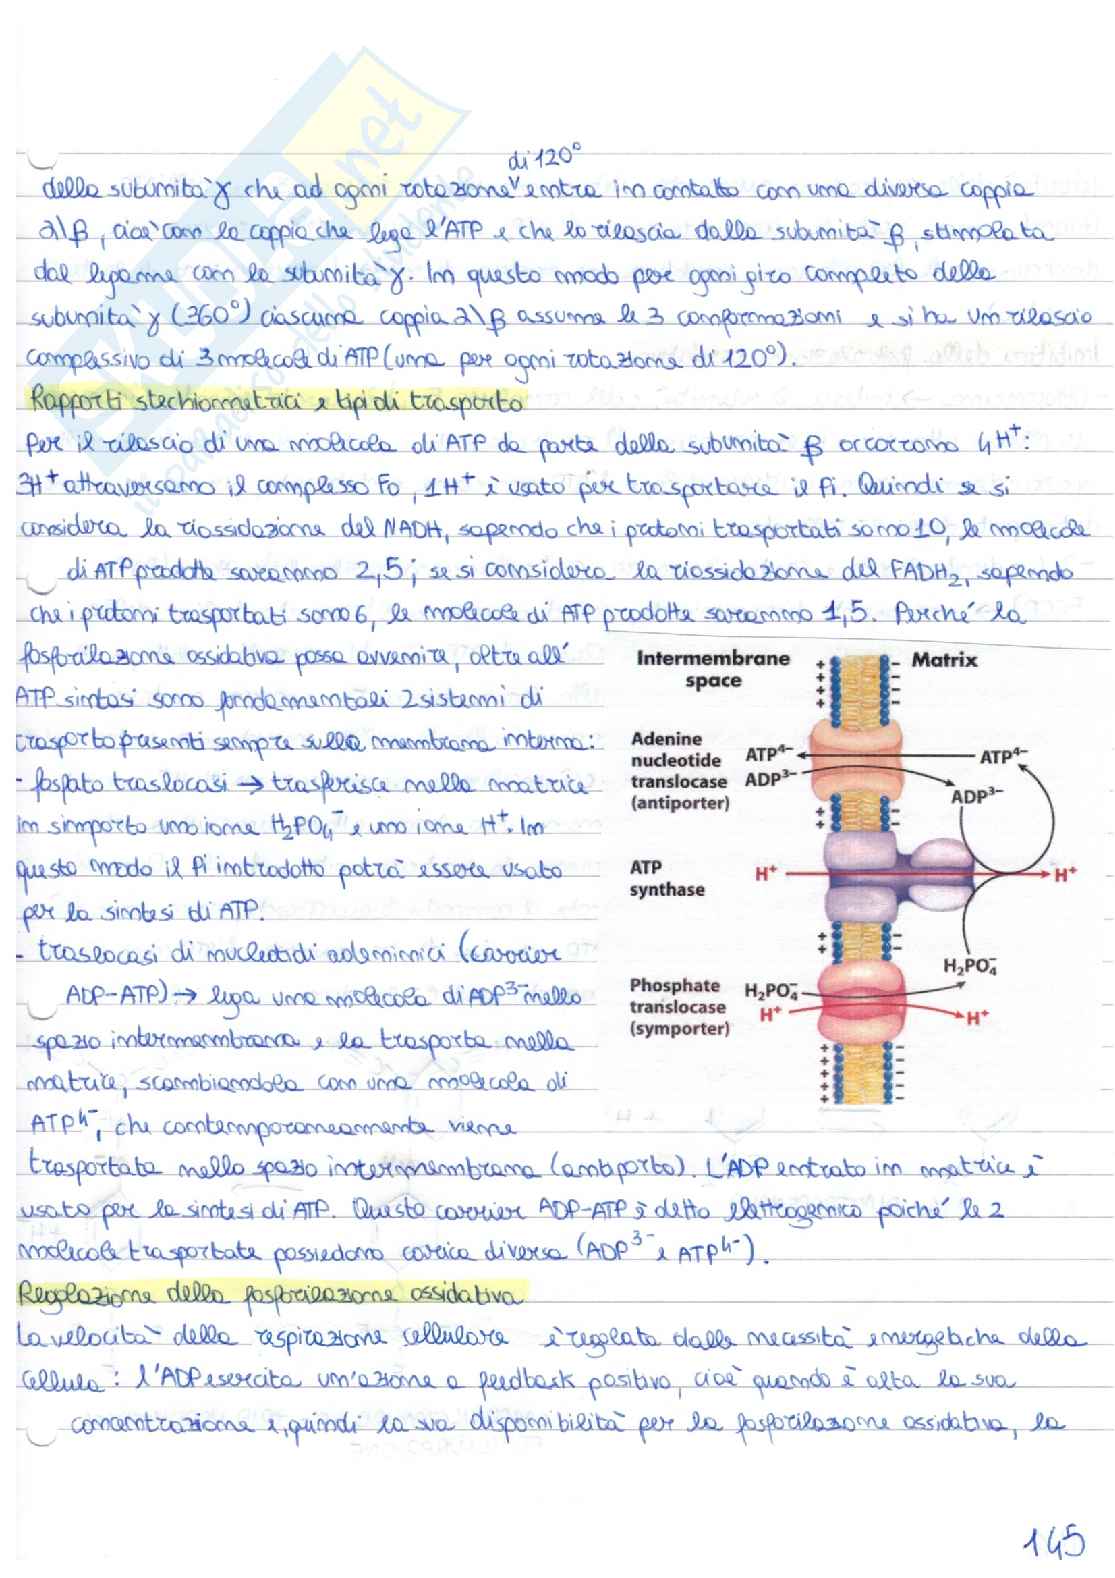 di 120°
della subunità γ che ad ogni rotazione entra in contatto con una diversa coppia
α\β, cioè con la coppia che lega l'ATP e che lo rilascia dalla subunità β, stimolata
dal legame con la subunità γ. In questo modo per ogni giro completo della
subunità γ (360°) ciascuna coppia α\β assume le 3 conformazioni e si ha un rilascio
complessivo di 3 molecole di ATP (una per ogni rotazione di 120°).
Rapporti stechiometrici e tipi di trasporto
Per il rilascio di una molecola di ATP da parte della subunità β occorrono 4H⁺:
3H⁺ attraversano il complesso Fo, 1H⁺ è usato per trasportare il Pi. Quindi se si
considera la riossidazione del NADH, sapendo che i protoni trasportati sono 10, le molecole
di ATP prodotte saranno 2,5; se si considera la riossidazione del FADH₂, sapendo
che i protoni trasportati sono 6, le molecole di ATP prodotte saranno 1,5. Perché la
fosforilazione ossidativa possa avvenire, oltre all'
ATP sintasi sono fondamentali 2 sistemi di
trasporto presenti sempre sulla membrana interna:
- fosfato traslocasi → trasferisce nella matrice
in simporto uno ione H₂PO₄⁻ e uno ione H⁺. In
questo modo il Pi introdotto potrà essere usato
per la sintesi di ATP.
- traslocasi di nucleotidi adeninici (carrier
ADP-ATP) → lega una molecola di ADP³⁻ nello
spazio intermembrana e la trasporta nella
matrice, scambiandola con una molecola di
ATP⁴⁻, che contemporaneamente viene
trasportata nello spazio intermembrana (antiporto). L'ADP entrato in matrice è
usato per la sintesi di ATP. Questo carrier ADP-ATP è detto elettrogenico poiché le 2
molecole trasportate possiedono carica diversa (ADP³⁻ e ATP⁴⁻).
Regolazione della fosforilazione ossidativa
La velocità della respirazione cellulare è regolata dalle necessità energetiche della
cellula: l'ADP esercita un'azione a feedback positivo, cioè quando è alta la sua
concentrazione e, quindi la sua disponibilità per la fosforilazione ossidativa, la
Intermembrane
space
Matrix
Adenine
nucleotide
translocase
(antiporter)
ATP⁴⁻
ADP³⁻
ATP⁴⁻
ADP³⁻
ATP
synthase
H⁺
H⁺
H₂PO₄⁻
Phosphate
translocase
(symporter)
H₂PO₄⁻
H⁺
H⁺
145